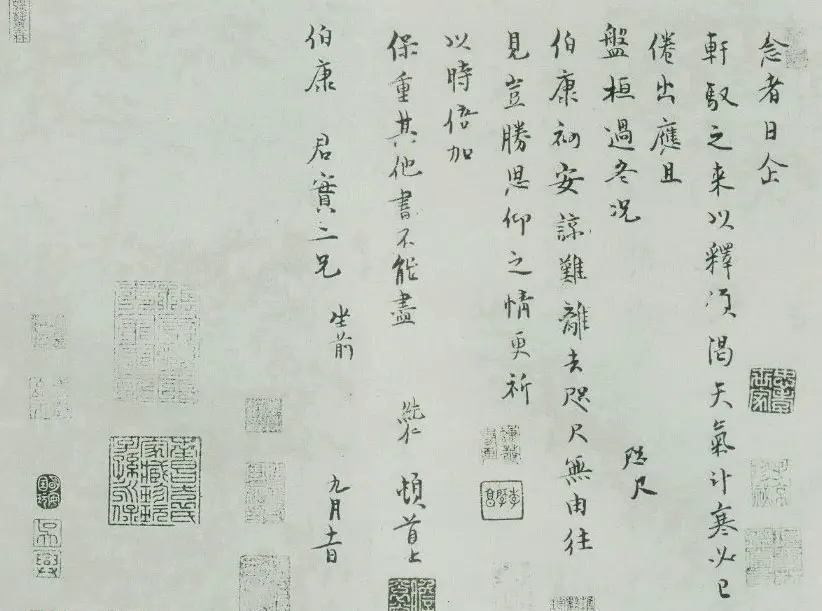 念者日企
軒馭之来以釋傾渴天氣計寒必已
倦出應且
盤桓過冬况
咫尺
伯康初安諒難離去咫尺無由往
見豈勝思仰之情更祈
以時倍加
保重其他書不能盡 純仁 頓首上
伯康 君實二兄
坐前 九月十一日